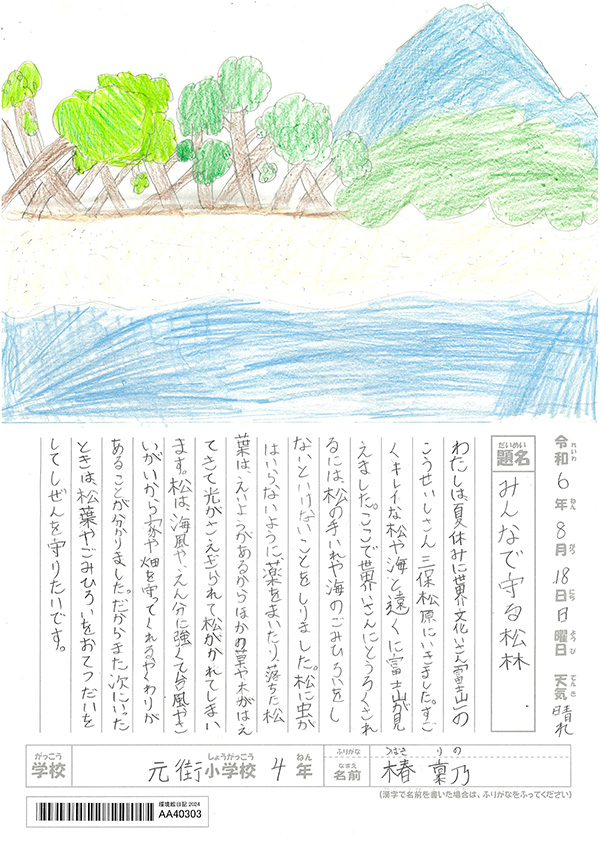 令和6年8月18日日曜日 天気晴れ
れいわ ねん がつ にち ようび てんき
だいめい
題名 みんなで守る松林
わたしは、夏休みに世界文化いさん「富士山」の
こうせいしさん三保松原にいきました。すご
くキレイな松や海と遠くに富士山が見
えました。ここで世界いさんにとうろくされ
るには、松の手いれや海のごみひろいをし
ないといけないことをしりました。松に虫が
はいらないように、薬をまいたり、落ちた松
葉は、えいようがあるからほかの草や木がはえ
てきて光がさえぎられて松がかれてしまい
ます。松は、海風や、えん分に強くて台風やさ
いがいから家や畑を守ってくれるやくわりが
あることが分かりました。だからまた次にいった
ときは、松葉やごみひろいをおてつだいを
してしぜんを守りたいです。
がっこう しょうがっこう ねん
学校 元街小学校 4年
ふりがな つばき りの
なまえ
名前 椿 稟乃
(漢字で名前を書いた場合は、ふりがなをふってください)
環境絵日記 2024
AA40303